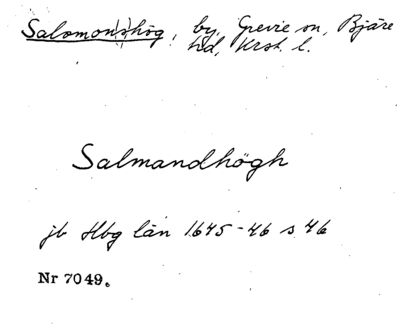 Salomon(s)hög, by, Grevie sn, Bjäre
hd, Krst. l.
Salmandhögh
jb Hbg län 1645-46 s 46
Nr 7049.